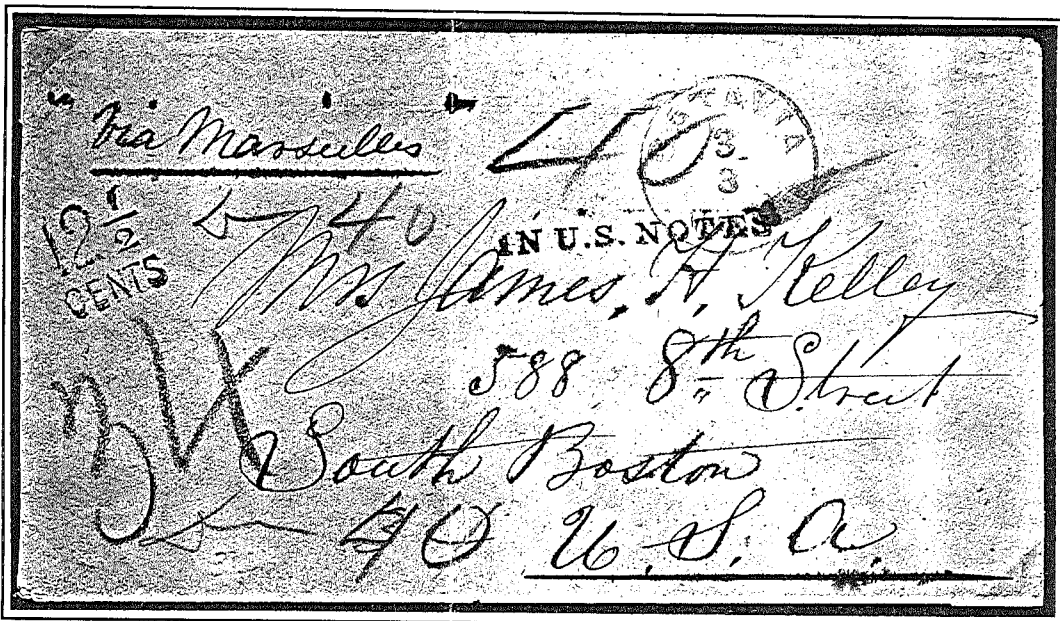 "Via Marseilles"
40
3
3
12 1/2
CENTS
40
IN U.S. NOTES
Mrs James, H, Kelley
588 8th Street
South Boston
40 U. S. A.